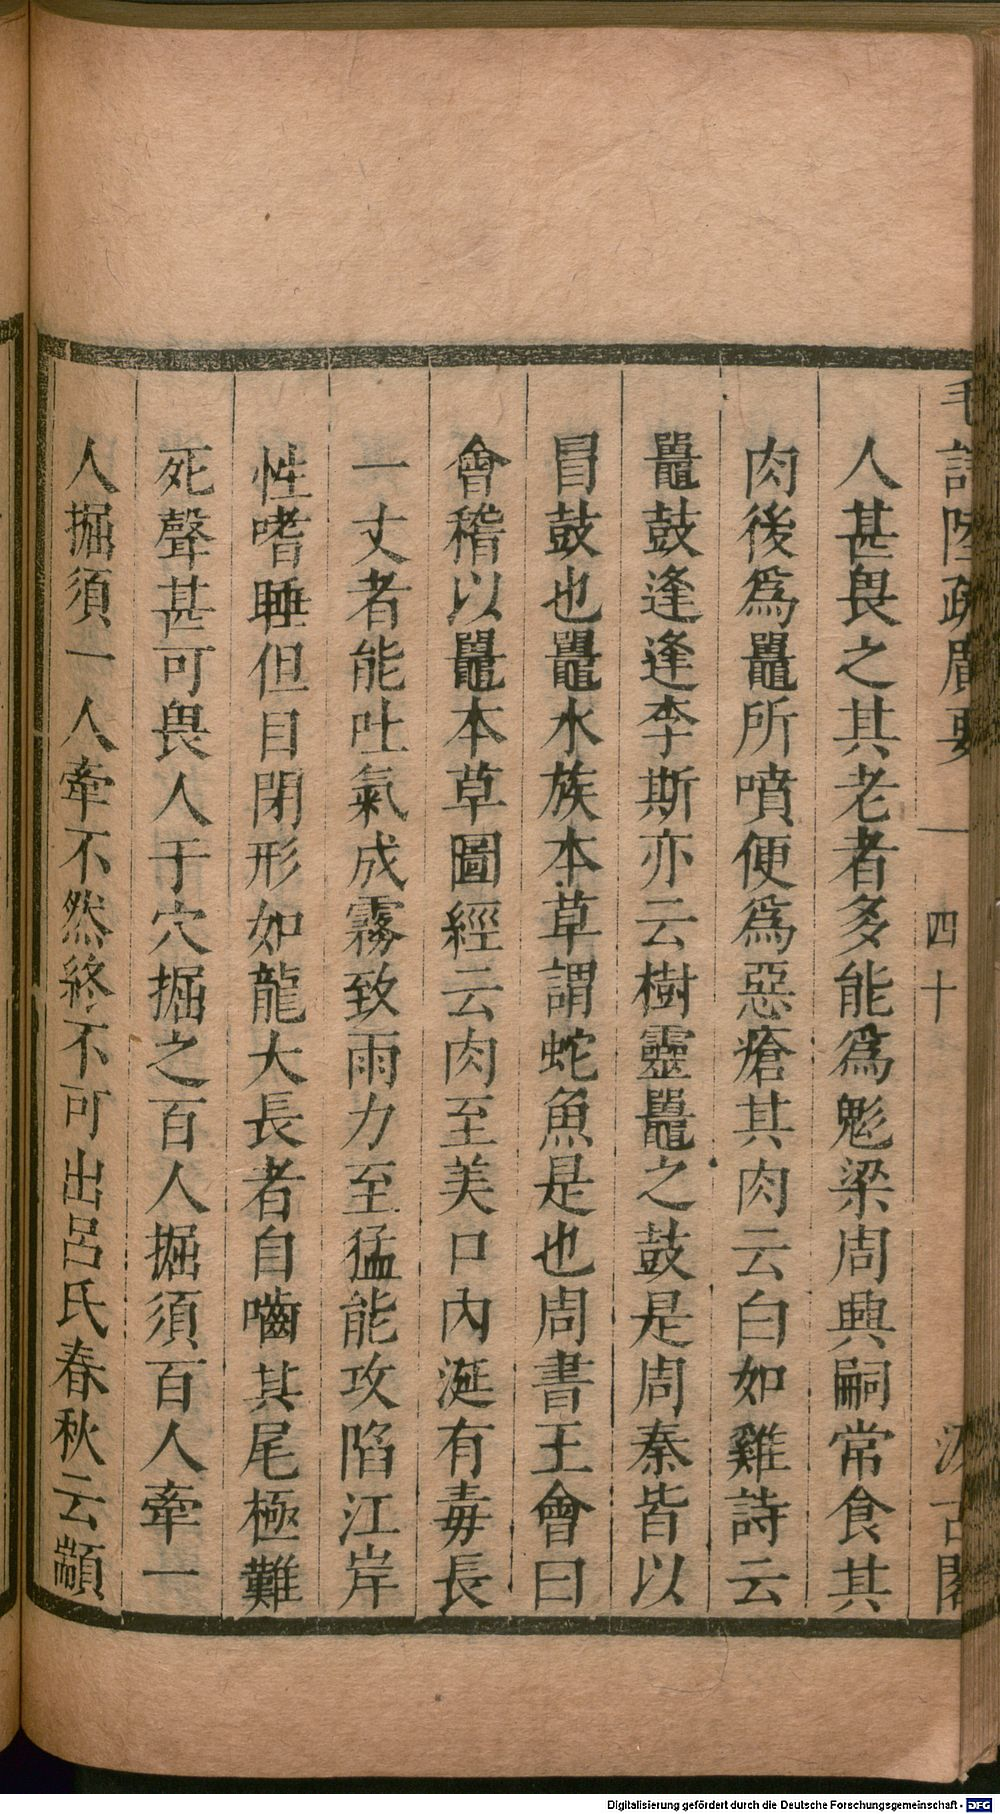 毛詩陸疏廣要 四十 汲古閣
人甚畏之其老者多能爲魅梁周興嗣常食其
肉後爲鼉所噴便爲惡瘡其肉云白如雞詩云
鼉鼓逢逢李斯亦云樹靈鼉之鼓是周秦皆以
冒鼓也鼉水族本草謂蛇魚是也周書王會曰
會稽以鼉本草圖經云肉至美口內涎有毒長
一丈者能吐氣成霧致雨力至猛能攻陷江岸
性嗜睡但目閉形如龍大長者自嚙其尾極難
死聲甚可畏人于穴掘之百人掘須百人牽一
人掘須一人牽不然終不可出呂氏春秋云顓
Digitalisierung gefördert durch die Deutsche Forschungsgemeinschaft - DFG